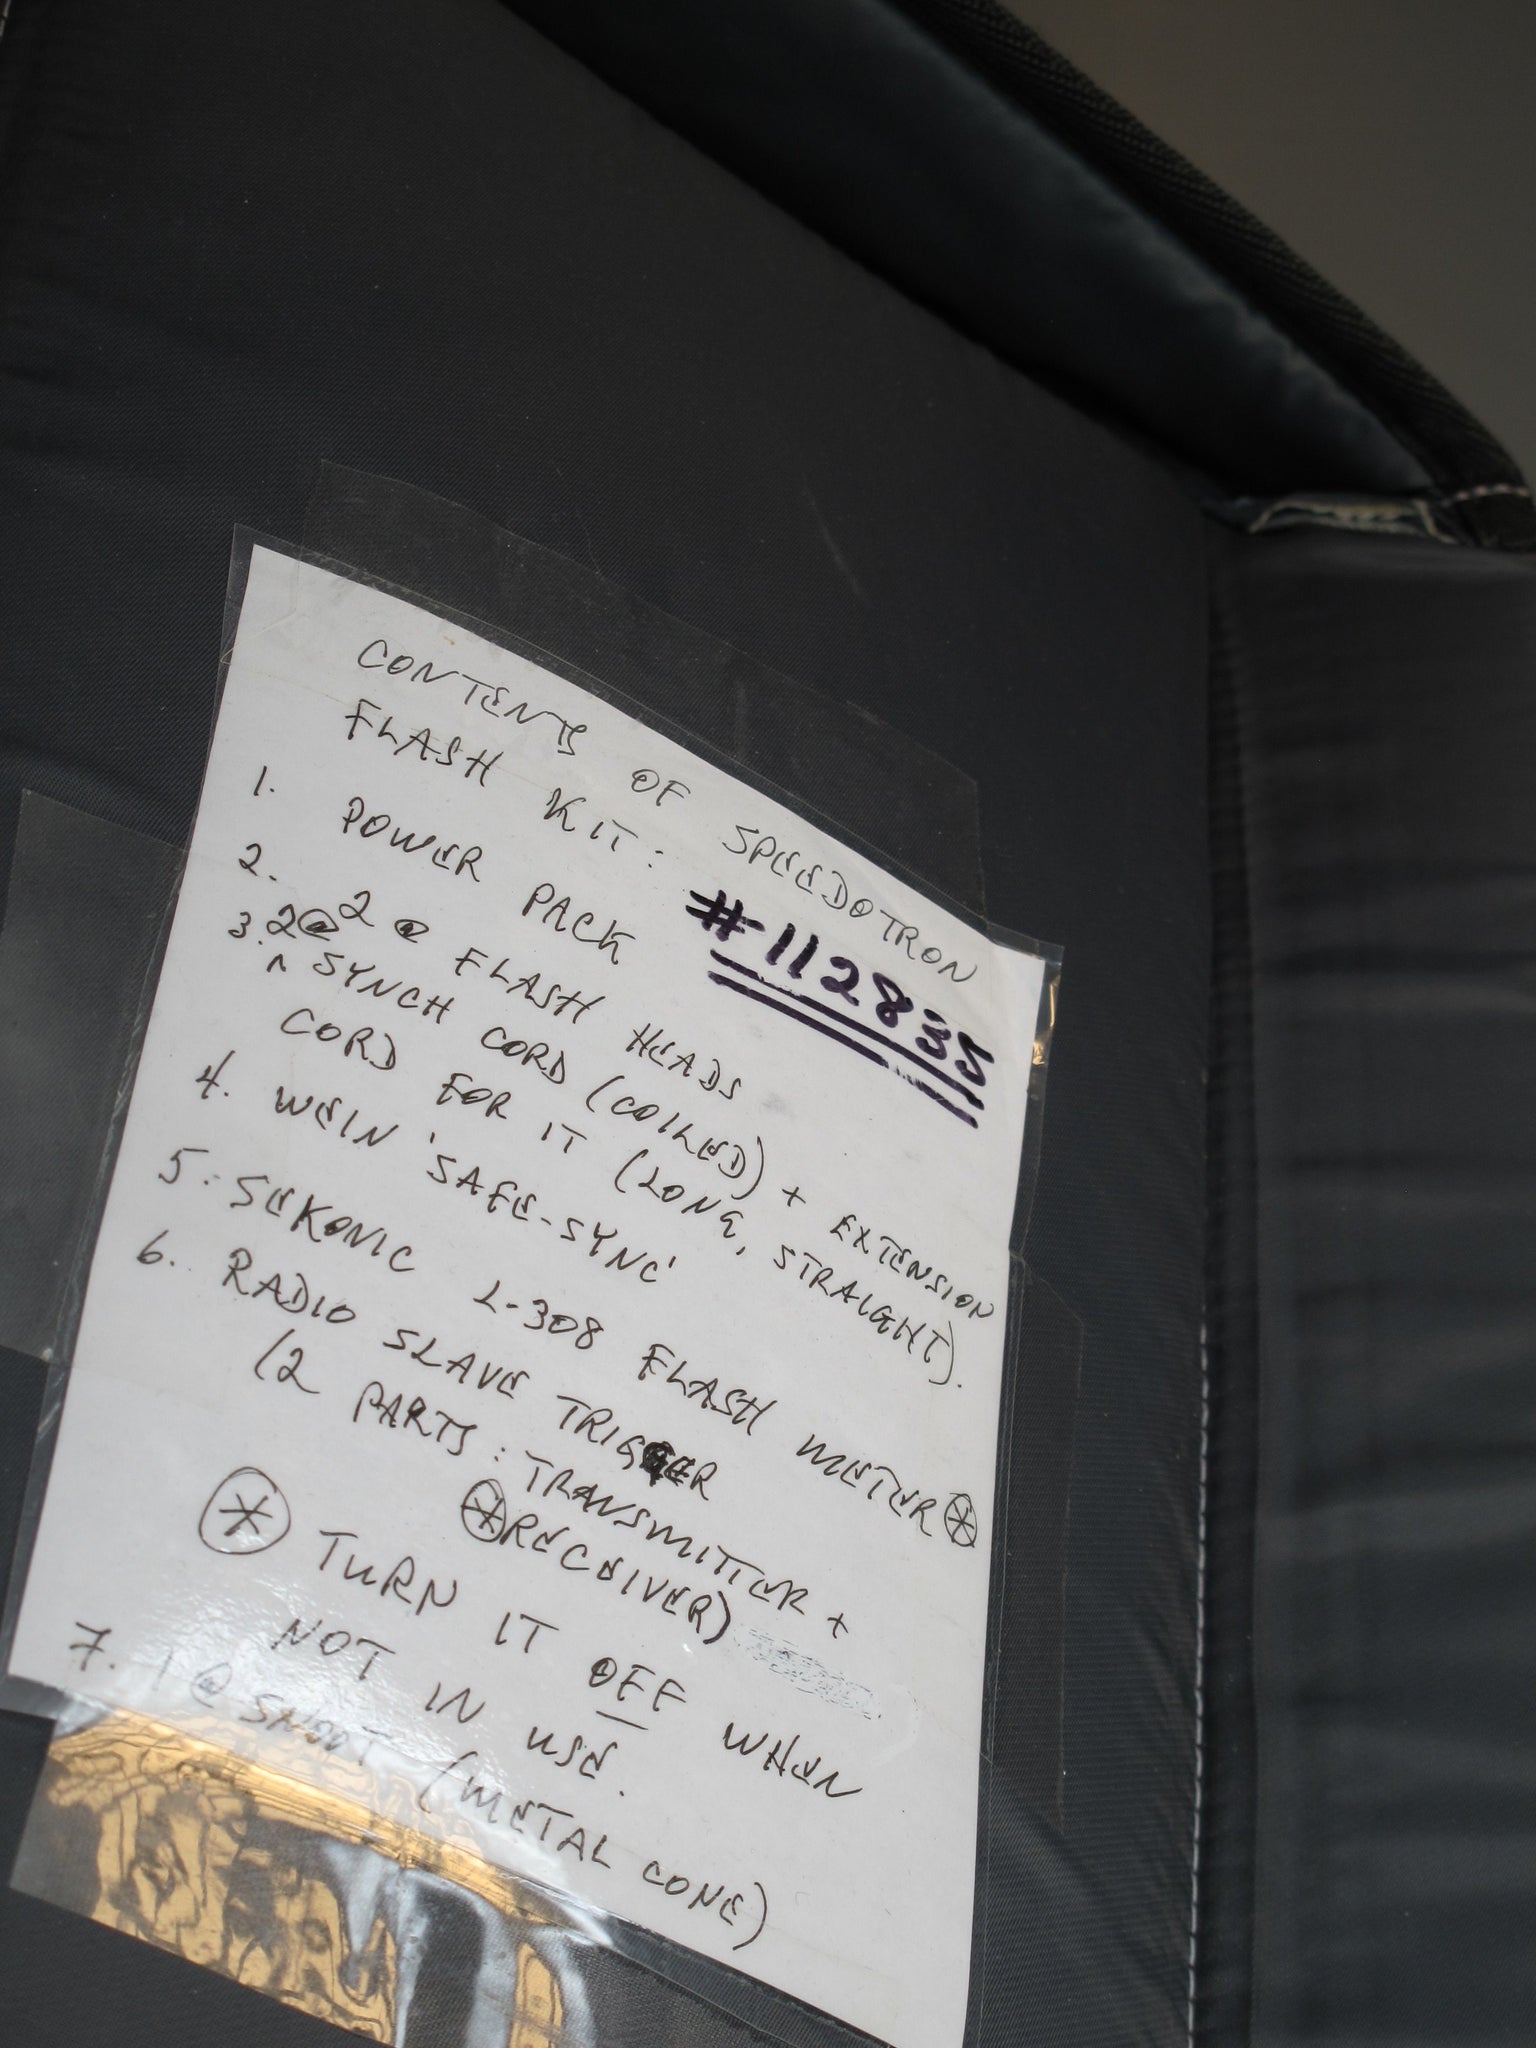 CONTENTS OF SPEEDOTRON
FLASH KIT: #112835
1. POWER PACK
2. 2 @ FLASH HEADS
3. 2@ SYNCH CORD (COILED) + EXTENSION
CORD FOR IT (LONG, STRAIGHT).
4. WEIN 'SAFE-SYNC'
5. SEKONIC L-308 FLASH METER ⊛
6. RADIO SLAVE TRIGGER
(2 PARTS: TRANSMITTER +
⊛ RECEIVER)
⊛ TURN IT OFF WHEN
NOT IN USE.
7. 1 @ SNOOT (METAL CONE)